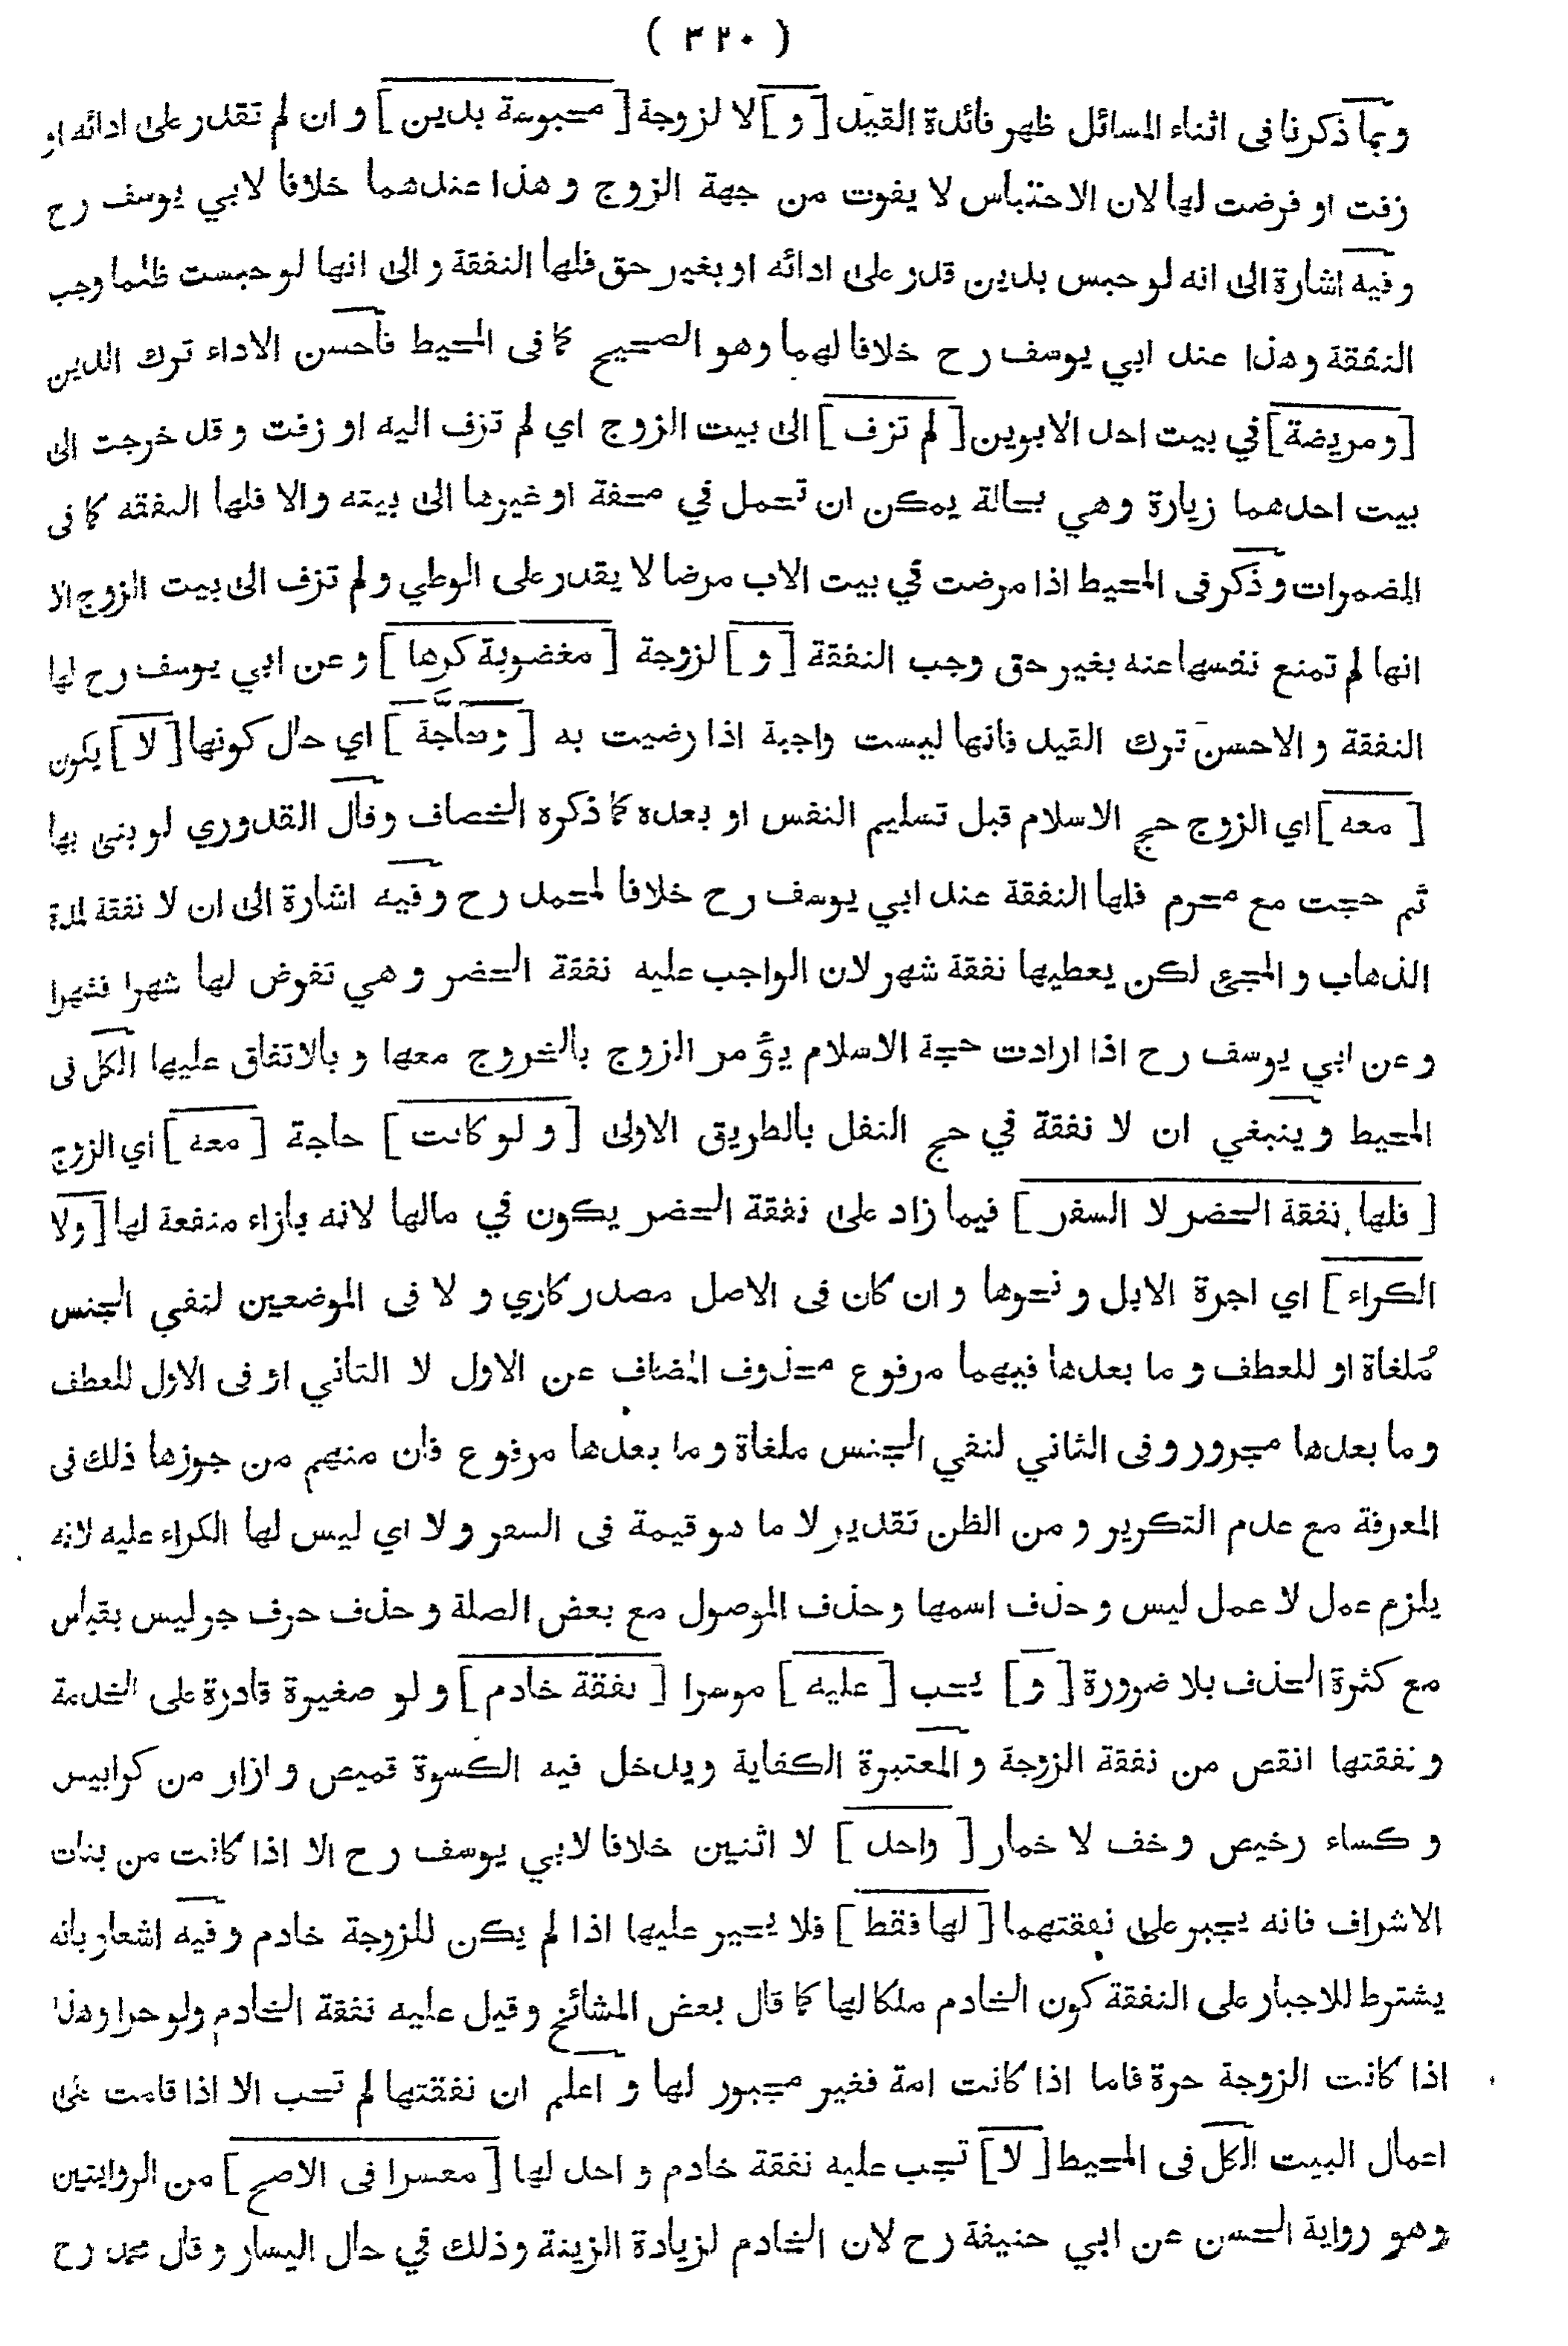 ( ٣٢٠ )
وبما ذكرنا فى اثناء المسائل ظهر فائدة القيد [ و ] لا لزوجة [ محبوسة بدين ] و ان لم تقدر على ادائه او
زفت او فرضت لها لان الاحتباس لا يفوت من جهة الزوج و هذا عندهما خلافا لابي يوسف رح
و فيه اشارة الى انه لو حبس بدين قدر على ادائه او بغير حق فلها النفقة و الى انها لو حبست ظلما وجب
النفقة و هذا عند ابي يوسف رح خلافا لهما وهو الصحيح كما فى المحيط فاحسن الاداء ترك الدين
[ و مريضة ] في بيت احد الابوين [ لم تزف ] الى بيت الزوج اي لم تزف اليه او زفت و قد خرجت الى
بيت احدهما زيارة وهي بحالة يمكن ان تحمل في محفة او غيرها الى بيته والا فلها النفقه كما فى
المضمرات و ذكر فى المحيط اذا مرضت في بيت الاب مرضا لا يقدر على الوطي و لم تزف الى بيت الزوج الا
انها لم تمنع نفسها عنه بغير حق وجب النفقة [ و ] لزوجة [ مغضوبة كرها ] و عن ابي يوسف رح لها
النفقة و الاحسن ترك القيد فانها ليست واجبة اذا رضيت به [ وحاجّة ] اي حال كونها [ لا ] يكون
[ معه ] اي الزوج حج الاسلام قبل تسليم النفس او بعده كما ذكره الخصاف وقال القدوري لو بنى بها
ثم حجت مع محرم فلها النفقة عند ابي يوسف رح خلافا لمحمد رح و فيه اشارة الى ان لا نفقة لمدة
الذهاب و المجئ لكن يعطيها نفقة شهر لان الواجب عليه نفقة الحضر و هي تفرض لها شهرا فشهرا
و عن ابي يوسف رح اذا ارادت حجة الاسلام يؤمر الزوج بالخروج معها و بالاتفاق عليها الكل فى
المحيط و ينبغي ان لا نفقة في حج النفل بالطريق الاولى [ و لو كانت ] حاجة [ معه ] اي الزوج
[ فلها نفقة الحضر لا السفر ] فيما زاد على نفقة الحضر يكون في مالها لانه بازاء منفعة لها [ ولا
الكراء ] اي اجرة الابل و نحوها و ان كان فى الاصل مصدر كاري و لا فى الموضعين لنفي الجنس
مُلغاة او للعطف و ما بعدها فيهما مرفوع محذوف المضاف عن الاول لا الثاني او فى الاول للعطف
و ما بعدها مجرور و فى الثاني لنفي الجنس ملغاة و ما بعدها مرفوع فان منهم من جوزها ذلك فى
المعرفة مع عدم التكرير و من الظن تقدير لا ما هو قيمة فى السفر و لا اي ليس لها الكراء عليه لانه
يلزم عمل لا عمل ليس و حذف اسمها و حذف الموصول مع بعض الصلة و حذف حرف جر ليس بقياس
مع كثرة الحذف بلا ضرورة [ و ] يجب [ عليه ] موسرا [ نفقة خادم ] و لو صغيرة قادرة على الخدمة
و نفقتها انقص من نفقة الزوجة و المعتبرة الكفاية ويدخل فيه الكسوة قميص و ازار من كرابيس
و كساء رخيص و خف لا خمار [ واحد ] لا اثنين خلافا لابي يوسف رح الا اذا كانت من بنات
الاشراف فانه يجبر على نفقتهما [ لها فقط ] فلا يجبر عليها اذا لم يكن للزوجة خادم و فيه اشعار بانه
يشترط للاجبار على النفقة كون الخادم ملكا لها كما قال بعض المشائخ و قيل عليه نفقة الخادم ولو حرا وهذا
اذا كانت الزوجة حرة فاما اذا كانت امة فغير مجبور لها و اعلم ان نفقتها لم تجب الا اذا قامت على
اعمال البيت الكل فى المحيط [ لا ] تجب عليه نفقة خادم و احد لها [ معسرا فى الاصح ] من الروايتين
وهو رواية الحسن عن ابي حنيفة رح لان الخادم لزيادة الزينة وذلك في حال اليسار و قال محمد رح